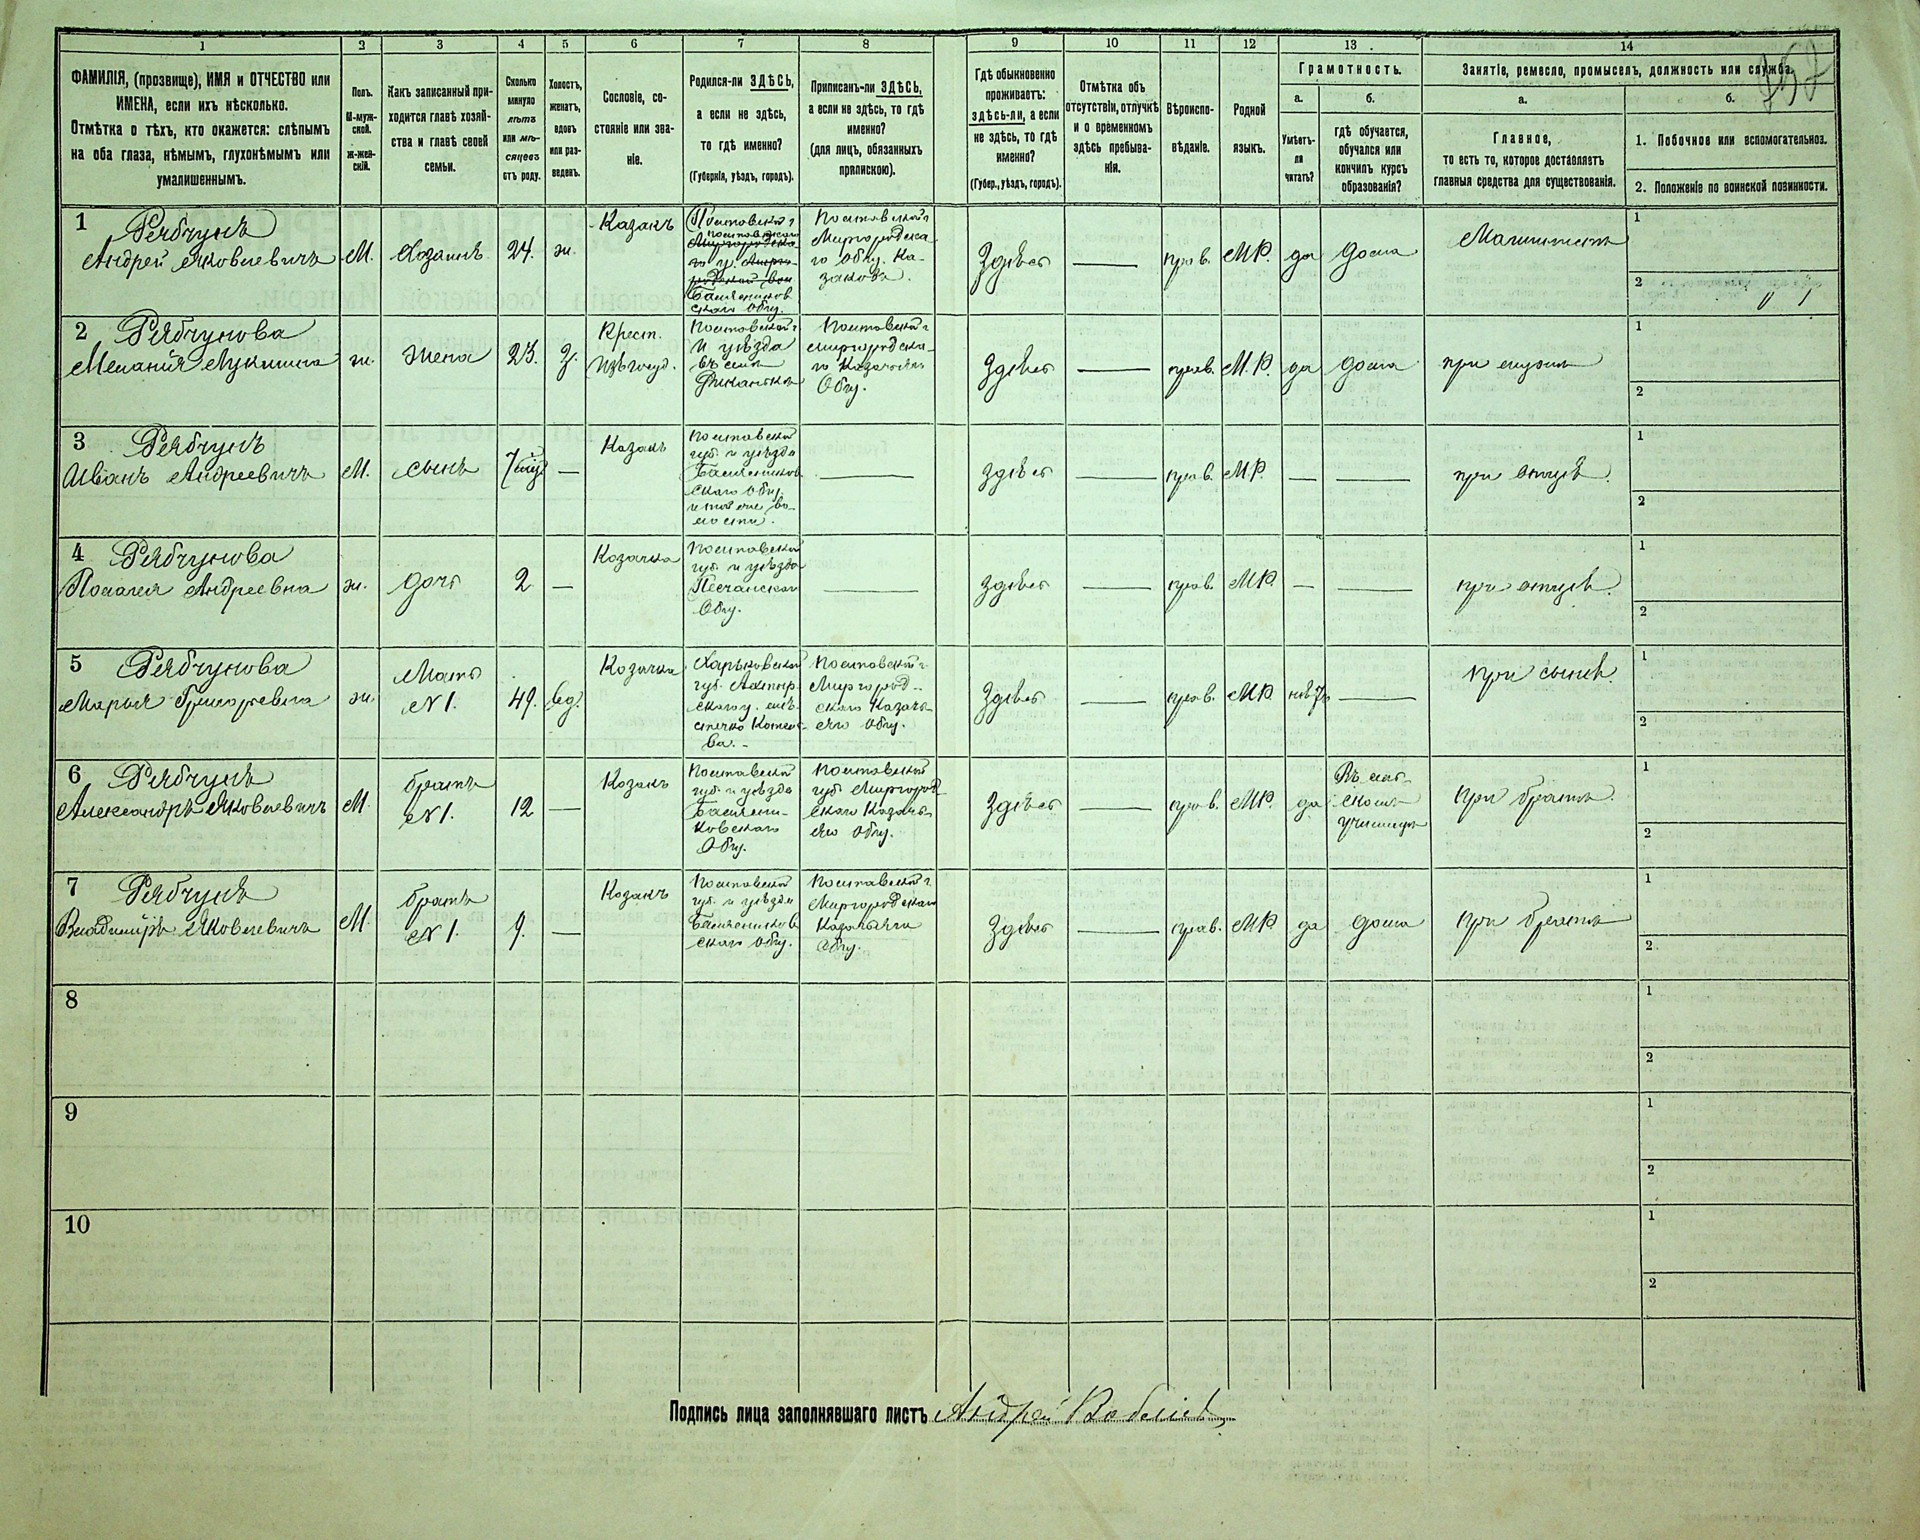 1 2 3 4 5 6 7 8 9 10 11 12 13 14
ФАМИЛІЯ, (прозвище), ИМЯ и ОТЧЕСТВО или
ИМЕНА, если ихъ нѣсколько.
Отмѣтка о тѣхъ, кто окажется: слѣпымъ
на оба глаза, нѣмымъ, глухонѣмымъ или
умалишеннымъ.
Полъ.
М-муж-
ской.
Ж-жен-
скій.
Какъ записанный при-
ходится главѣ хозяй-
ства и главѣ своей
семьи.
Сколько
минуло
лѣтъ
или мѣ-
сяцевъ
отъ роду.
Холостъ,
женатъ,
вдовъ
или раз-
веденъ.
Сословіе, со-
стояніе или зва-
ніе.
Родился-ли ЗДѢСЬ,
а если не здѣсь,
то гдѣ именно?
(Губернія, уѣздъ, городъ).
Приписанъ-ли ЗДѢСЬ,
а если не здѣсь, то гдѣ
именно?
(для лицъ, обязанныхъ
припискою).
Гдѣ обыкновенно
проживаетъ:
здѣсь-ли, а если
не здѣсь, то гдѣ
именно?
(Губер., уѣздъ, городъ).
Отмѣтка объ
отсутствіи, отлучкѣ
и о временномъ
здѣсь пребыва-
ніи.
Вѣроиспо-
вѣданіе.
Родной
языкъ.
Грамотность.
а.
Умѣетъ-
ли
читать?
б.
гдѣ обучается,
обучался или
кончилъ курсъ
образованія?
Занятіе, ремесло, промыселъ, должность или служба.
а.
Главное,
то есть то, которое доставляетъ
главныя средства для существованія.
б.
1. Побочное или вспомогательное.
2. Положеніе по воинской повинности.
1
Рябчунъ
Андрей Яковлевичъ
М.
Хозяинъ
24.
ж.
Казакъ
Полтавской г
Полтавской г
Миргородска-
го Общ. Ка-
заковъ.
Здѣсь
—
прав.
МР.
да
дома
Машинистъ
1
2
2
Рябчунова
Меланія Лукинична
ж.
жена
23.
З.
Крест.
Полтавской г
и уѣзда
въ селѣ
Диканькѣ
Полтавской г
Миргородска-
го Казачьяго
Общ.
Здѣсь
—
прав.
М.Р.
да
дома
при мужѣ
1
2
3
Рябчунъ
Иванъ Андреевичъ
М.
сынъ
7 мѣс
—
Казакъ
Полтавской
губ. и уѣзда
—
здѣсь
—
прав.
МР.
—
—
при отцѣ.
1
2
4
Рябчунова
Пелагея Андреевна
ж.
дочь
2
—
Козачка
Полтавской
губ. и уѣзда
Песчанской
Общ.
—
здѣсь
—
прав.
МР
—
—
при отцѣ.
1
2
5
Рябчунова
Марья Григорьевна
ж.
Мать
№1.
49.
вд.
Козачка
Харьковской
губ. Ахтыр-
скаго у. мѣ-
стечко Котель-
ва.
Полтавской г
Миргород-
скаго Казачь-
яго Общ.
Здѣсь
—
прав.
МР
нѣтъ
—
При сынѣ.
1
2
6
Рябчунъ
Александръ Яковлевичъ
М.
братъ
№1.
12
—
Козакъ
Полтавской
губ. и уѣзда
Полтавской
губ. Миргород
скаго Казачь-
яго Общ.
Здѣсь
—
прав.
МР.
да
Въ сель-
скомъ
училищѣ
При братѣ.
1
2
7
Рябчунъ
Владиміръ Яковлевичъ
М.
братъ
№1.
9.
—
Козакъ
Полтавской
губ. и уѣзда
Полтавской г.
Миргородскаго
Казачьяго
Общ.
Здѣсь
—
прав.
МР
да
дома
при братѣ
1
2
8
1
2
9
1
2
10
1
2
Подпись лица заполнявшаго листъ Андрей